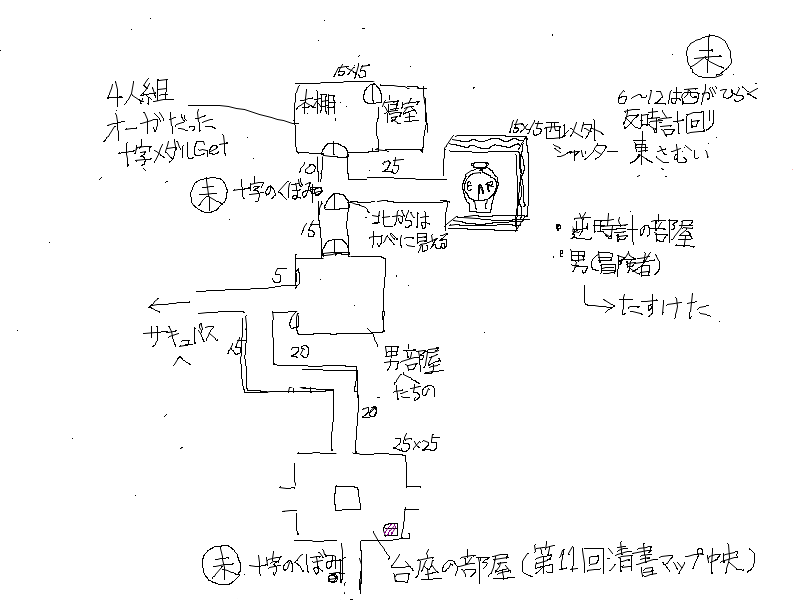 未
15×15
4人組
オーガだった
十字メダルGet
本棚
寝室
6〜12は西がひらく
反時計回り
東さむい
15×15西以外
シャッター
10
25
未 十字のくぼみ
15
北からは
カベに見える
・逆時計の部屋
・男(冒険者)
→たすけた
5
サキュバス
へ
15
20
男部屋
たちの
20
25×25
未 十字のくぼみ
台座の部屋(第11回清書マップ中央)